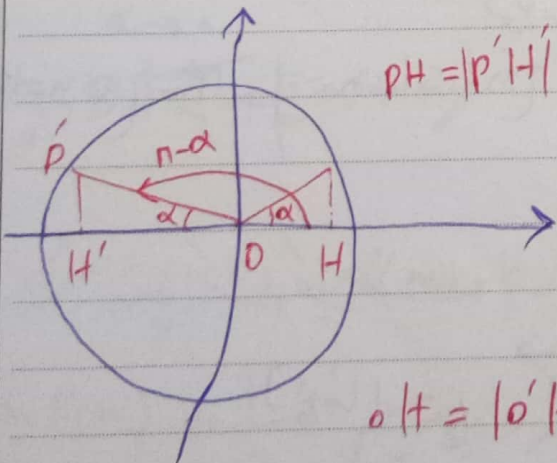 PH = |P'H'
P'
π-α
α
α
H'
O
H
OH = |O'|